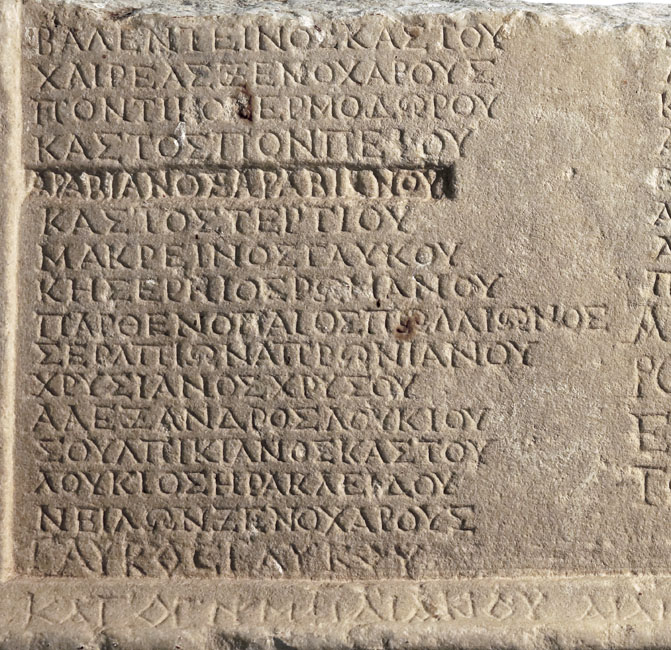 ΒΑΛΕΝΤΕΙΝΟΣΚΑΣΤΟΥ
ΧΑΙΡΕΛΑΣΞΕΝΟΧΑΡΟΥΣ
ΠΟΝΤΙΚΟΣΕΡΜΟΔΩΡΟΥ
ΚΑΣΤΟΣΠΟΝΠΕΙΟΥ
ΑΡΑΒΙΑΝΟΣΑΡΑΒΙΩΝΟΥ
ΚΑΣΤΟΣΤΕΡΤΙΟΥ
ΜΑΚΡΕΙΝΟΣΓΛΥΚΟΥ
ΚΗΣΕΡΝΙΟΣΡΩΜΑΝΟΥ
ΠΑΡΘΕΝΟΠΑΙΟΣΠΩΛΛΙΩΝΟΣ
ΣΕΡΑΠΙΩΝΑΠΡΩΝΙΑΝΟΥ
ΧΡΥΣΙΑΝΟΣΧΡΥΣΟΥ
ΑΛΕΞΑΝΔΡΟΣΛΟΥΚΙΟΥ
ΣΟΥΛΠΙΚΙΑΝΟΣΚΑΣΤΟΥ
ΛΟΥΚΙΟΣΗΡΑΚΛΕΙΔΟΥ
ΝΕΙΛΩΝΞΕΝΟΧΑΡΟΥΣ
ΓΛΥΚΟΣΓΛΥΚΟΥ